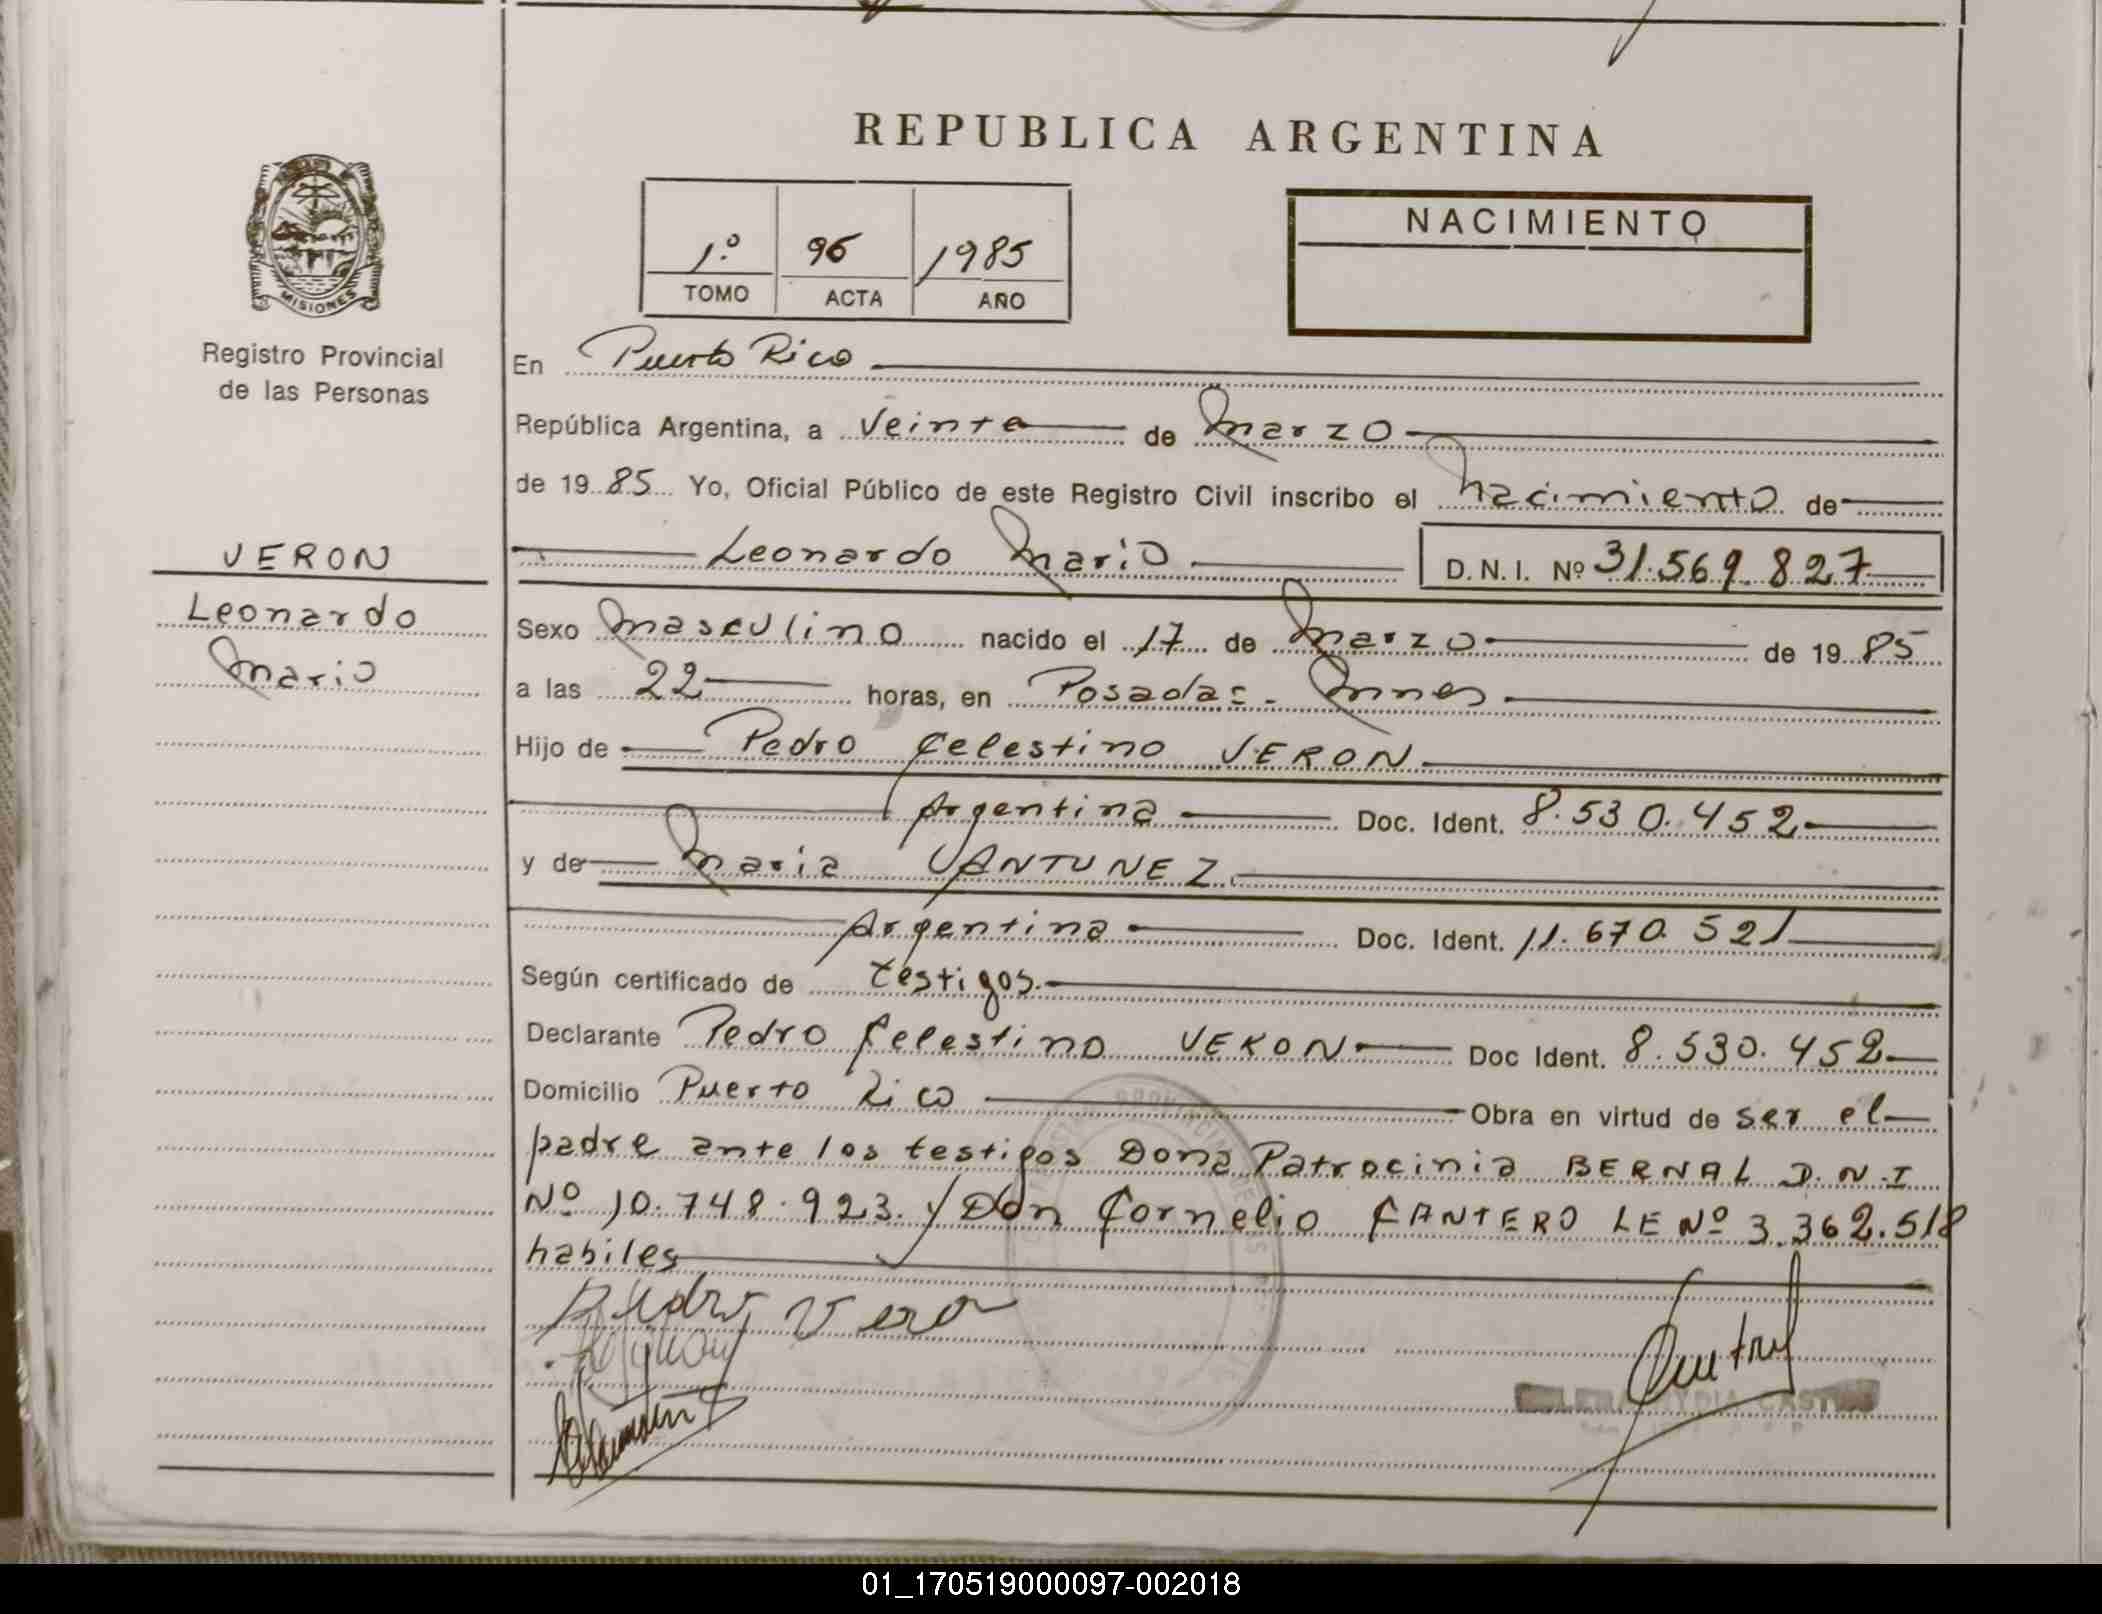 REPUBLICA ARGENTINA
1º 96 1985
TOMO ACTA AÑO
NACIMIENTO
MISIONES
Registro Provincial
de las Personas
VERON
Leonardo
Mario
En Puerto Rico
República Argentina, a veinte de Marzo
de 1985 Yo, Oficial Público de este Registro Civil inscribo el Nacimiento de
Leonardo Mario D.N.I. Nº 31.569.827
Sexo Masculino nacido el 17 de Marzo de 1985
a las 22 horas, en Posadas - Mnes
Hijo de Pedro Celestino VERON
Argentina Doc. Ident. 8.530.452
y de Maria ANTUNEZ
Argentina Doc. Ident. 11.670.521
Según certificado de testigos.
Declarante Pedro Celestino VERON Doc Ident. 8.530.452
Domicilio Puerto Rico Obra en virtud de ser el
padre ante los testigos Dona Patrocinia BERNAL D.N.I
Nº 10.748.923. y Don Cornelio CANTERO LE Nº 3.362.518
habiles
Pedro Vero
01_170519000097-002018